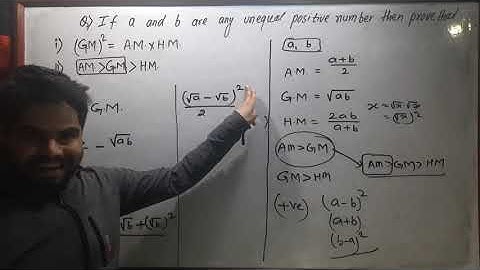 Q) If a and b are any unequal positive number then prove that
i) (GM)² = AM × HM
ii) AM > GM > HM
G.M.
- √ab
√b + (√b)²
(√a - √b)²
2
a, b
A.M. = a+b/2
G.M = √ab
H.M. = 2ab/a+b
x = √x √x
= (√x)²
AM > GM
AM > GM > HM
GM > HM
(+ve) (a-b)²
(a+b)
(b-a)²